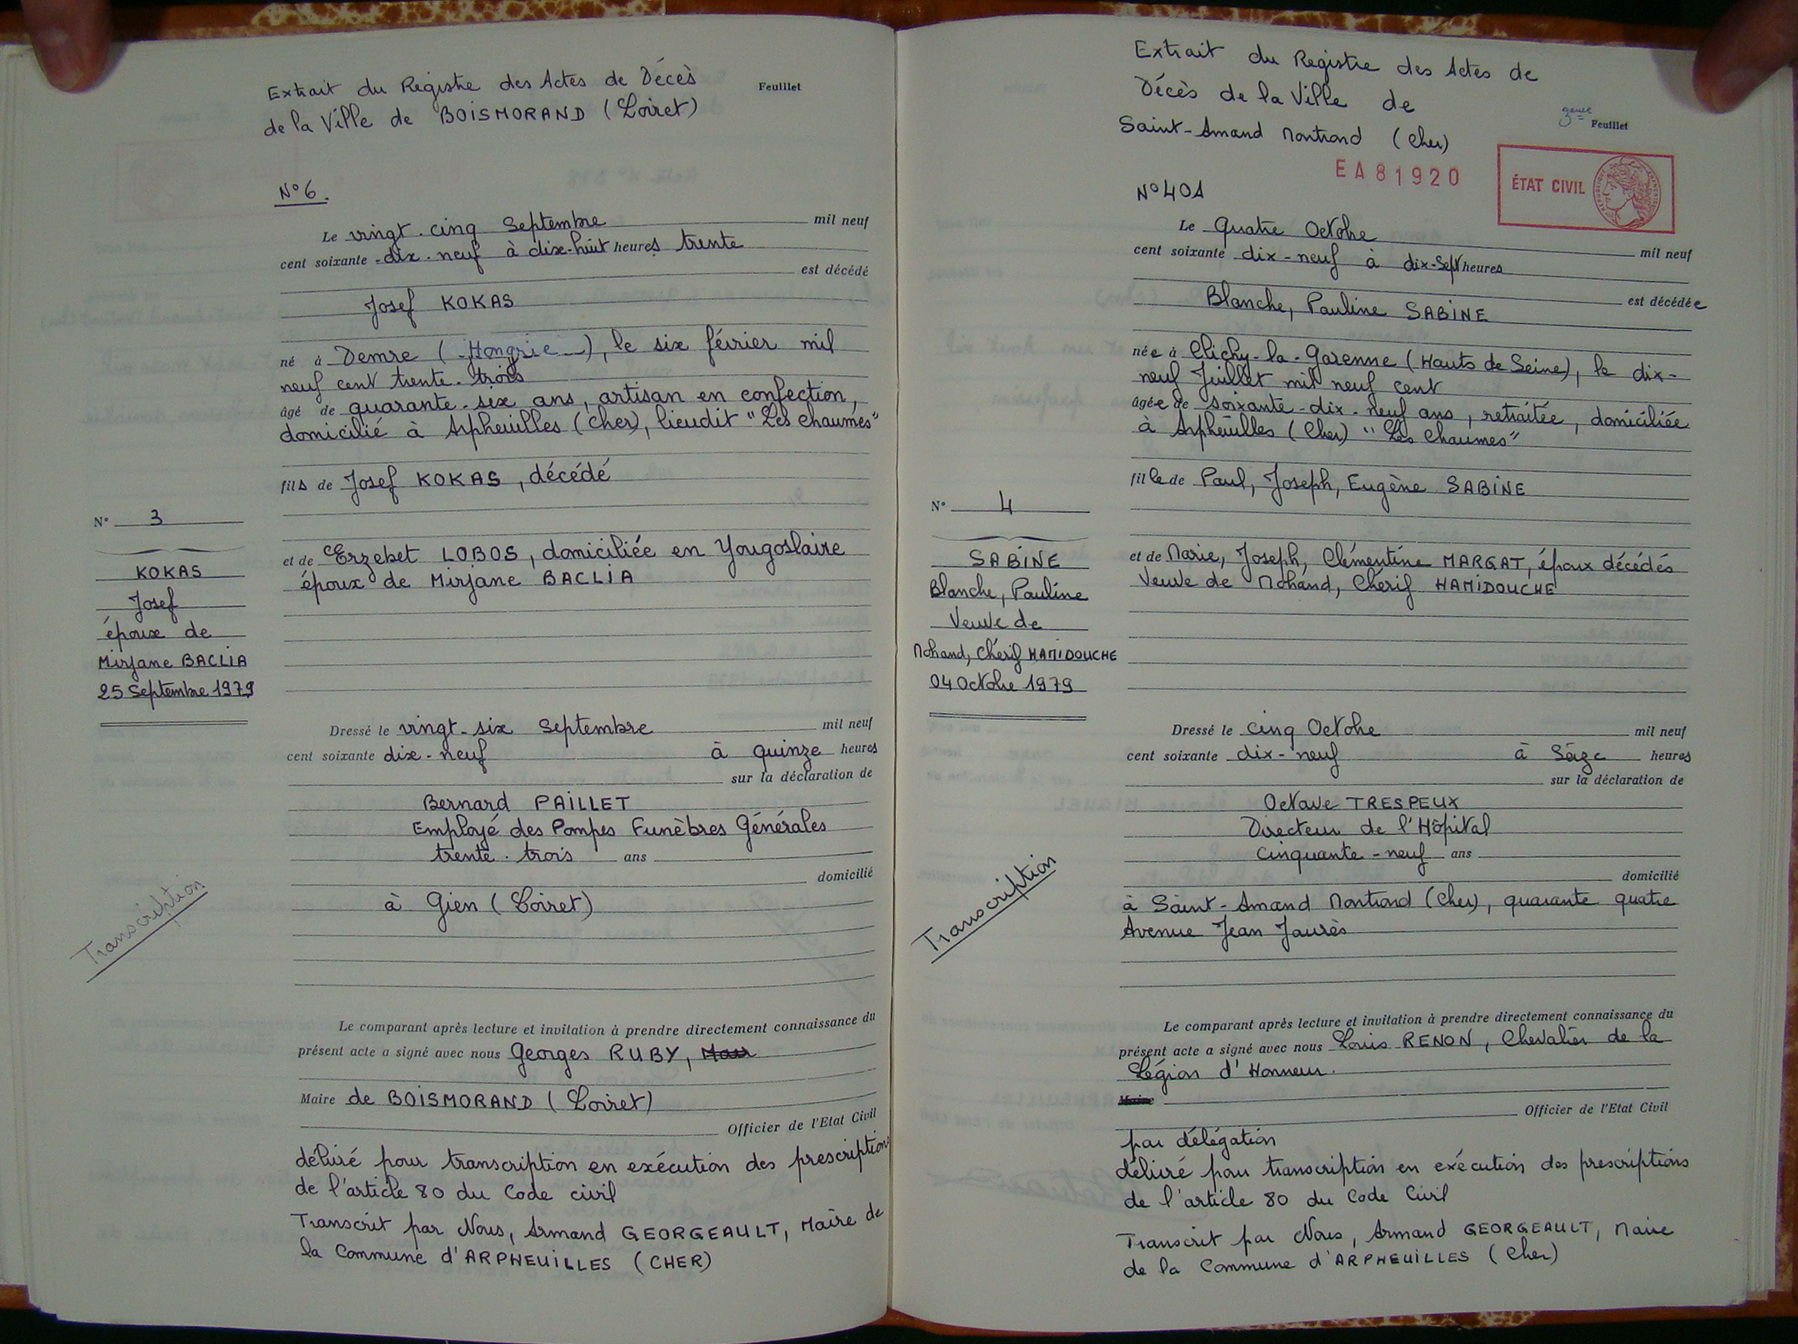 Extrait du Registre des Actes de Décès
de la Ville de BOISMORAND (Loiret)
Feuillet
N° 6.
Le vingt. cinq Septembre mil neuf
cent soixante - dix. neuf à dix-huit heures trente
est décédé
Josef KOKAS
né à Demre ( Hongrie ), le six février mil
neuf cent trente. trois
âgé de quarante. six ans, artisan en confection,
domicilié à Arpheuilles (Cher), lieudit "Les Chaumes"
fils de Josef KOKAS, décédé
N° 3
KOKAS
Josef
époux de
Mirjane BACLIA
25 Septembre 1979
et de Erzebet LOBOS, domiciliée en Yougoslavie
époux de Mirjane BACLIA
Dressé le vingt. six Septembre mil neuf
cent soixante dix. neuf à quinze heures
sur la déclaration de
Bernard PAILLET
Employé des Pompes Funèbres Générales
trente. trois ans
domicilié
à Gien (Loiret)
Transcription
Le comparant après lecture et invitation à prendre directement connaissance du
présent acte a signé avec nous Georges RUBY,
Maire de BOISMORAND (Loiret)
Officier de l'Etat Civil
délivré pour transcription en exécution des prescriptions
de l'article 80 du Code civil
Transcrit par Nous, Armand GEORGEAULT, Maire de
la Commune d'ARPHEUILLES (CHER)
Extrait du Registre des Actes de
Décès de la Ville de
Saint-Amand Montrond (Cher)
2ème Feuillet
EA81920
ÉTAT CIVIL
N° 401
Le Quatre Octobre mil neuf
cent soixante dix - neuf à dix-sept heures
est décédée
Blanche, Pauline SABINE
née à Clichy-la-Garenne (Hauts de Seine), le dix-
neuf Juillet mil neuf cent
âgée de soixante-dix. neuf ans, retraitée, domiciliée
à Arpheuilles (Cher) "Les Chaumes"
fille de Paul, Joseph, Eugène SABINE
N° 4
SABINE
Blanche, Pauline
Veuve de
Mohand, Chérif HAMIDOUCHE
04 Octobre 1979
et de Marie, Joseph, Clémentine MARGAT, époux décédés
Veuve de Mohand, Chérif HAMIDOUCHE
Dressé le cinq Octobre mil neuf
cent soixante dix-neuf à Seize heures
sur la déclaration de
Octave TRESPEUX
Directeur de l'Hôpital
cinquante - neuf ans
domicilié
à Saint-Amand Montrond (Cher), quarante quatre
Avenue Jean Jaurès
Transcription
Le comparant après lecture et invitation à prendre directement connaissance du
présent acte a signé avec nous Louis RENON, Chevalier de la
Légion d'Honneur.
Maire
Officier de l'Etat Civil
par délégation
délivré pour transcription en exécution des prescriptions
de l'article 80 du Code Civil
Transcrit par Nous, Armand GEORGEAULT, Maire
de la Commune d'ARPHEUILLES (Cher)